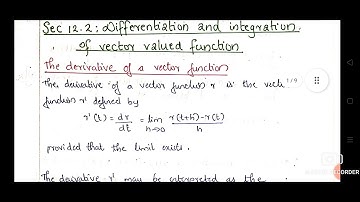 Sec 12.2: Differentiation and integration
of vector valued function
The derivative of a vector function
The derivative of a vector function r is the vector
function r' defined by
r'(t) = dr/dt = lim h→0 r(t+h)-r(t)/h
provided that the limit exists.
The derivative r' may be interpreted as the
1/9
RECORDER